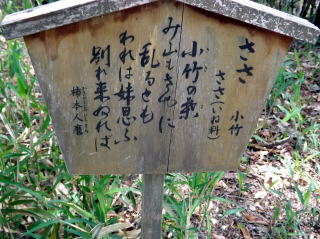 ささ
小竹
ささ(いね科)
小竹の葉
み山もさやに
乱るとも
われは妹思ふ
別れ来ぬれば
柿本人麿